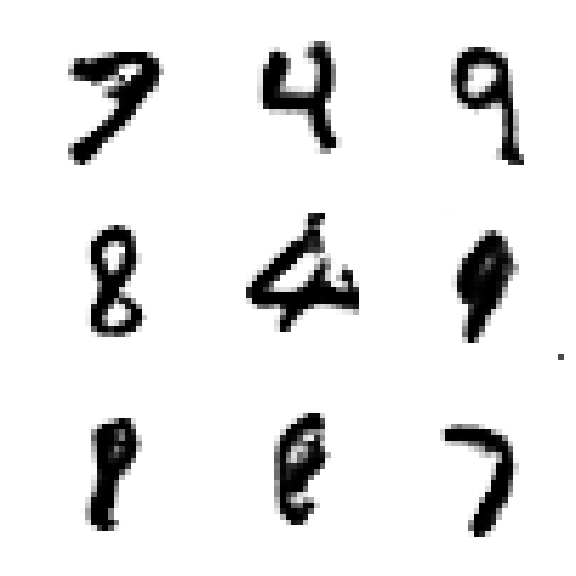 7 4 9
8 4 9
8 8 7